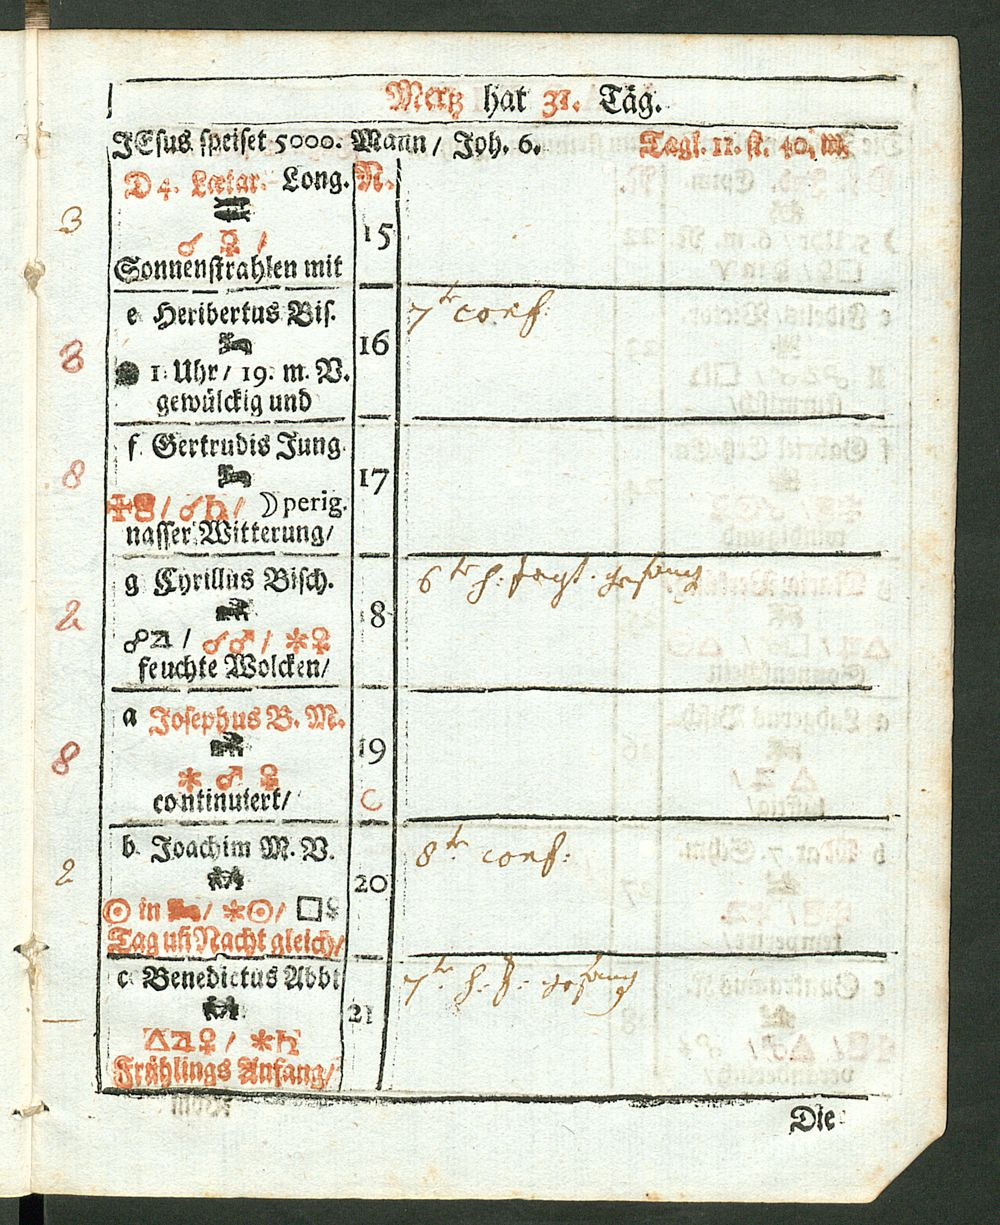 Mertz hat 31. Täg.
JEsus speiset 5000. Mann / Joh. 6. Tagl. 11. st. 40. m.
D 4. Lætar. Long. N.
3
☌ ☿ / 15
Sonnenstrahlen mit
e Heribertus Bis. 7tr conf:
8 16
● 1. Uhr / 19. m. V.
gewülckig und
f. Gertrudis Jung.
8 17
✠☿ / ☌♄ / ☽ perig.
nasser Witterung /
g Cyrillus Bisch. 6tr h:
2 18
☍♃ / ☌♂ / ✱♀
feuchte Wolcken /
a Josephus B. M.
8 19
✱ ♂ ☿
continuiert / C
b. Joachim M. V. 8tr conf:
2 20
☉ in / ✱☉ / □☿
Tag uñ Nacht gleich /
c Benedictus Abbt 7tr h: f:
21
△♃♀ / ✱♄
Frühlings Anfang /
Die